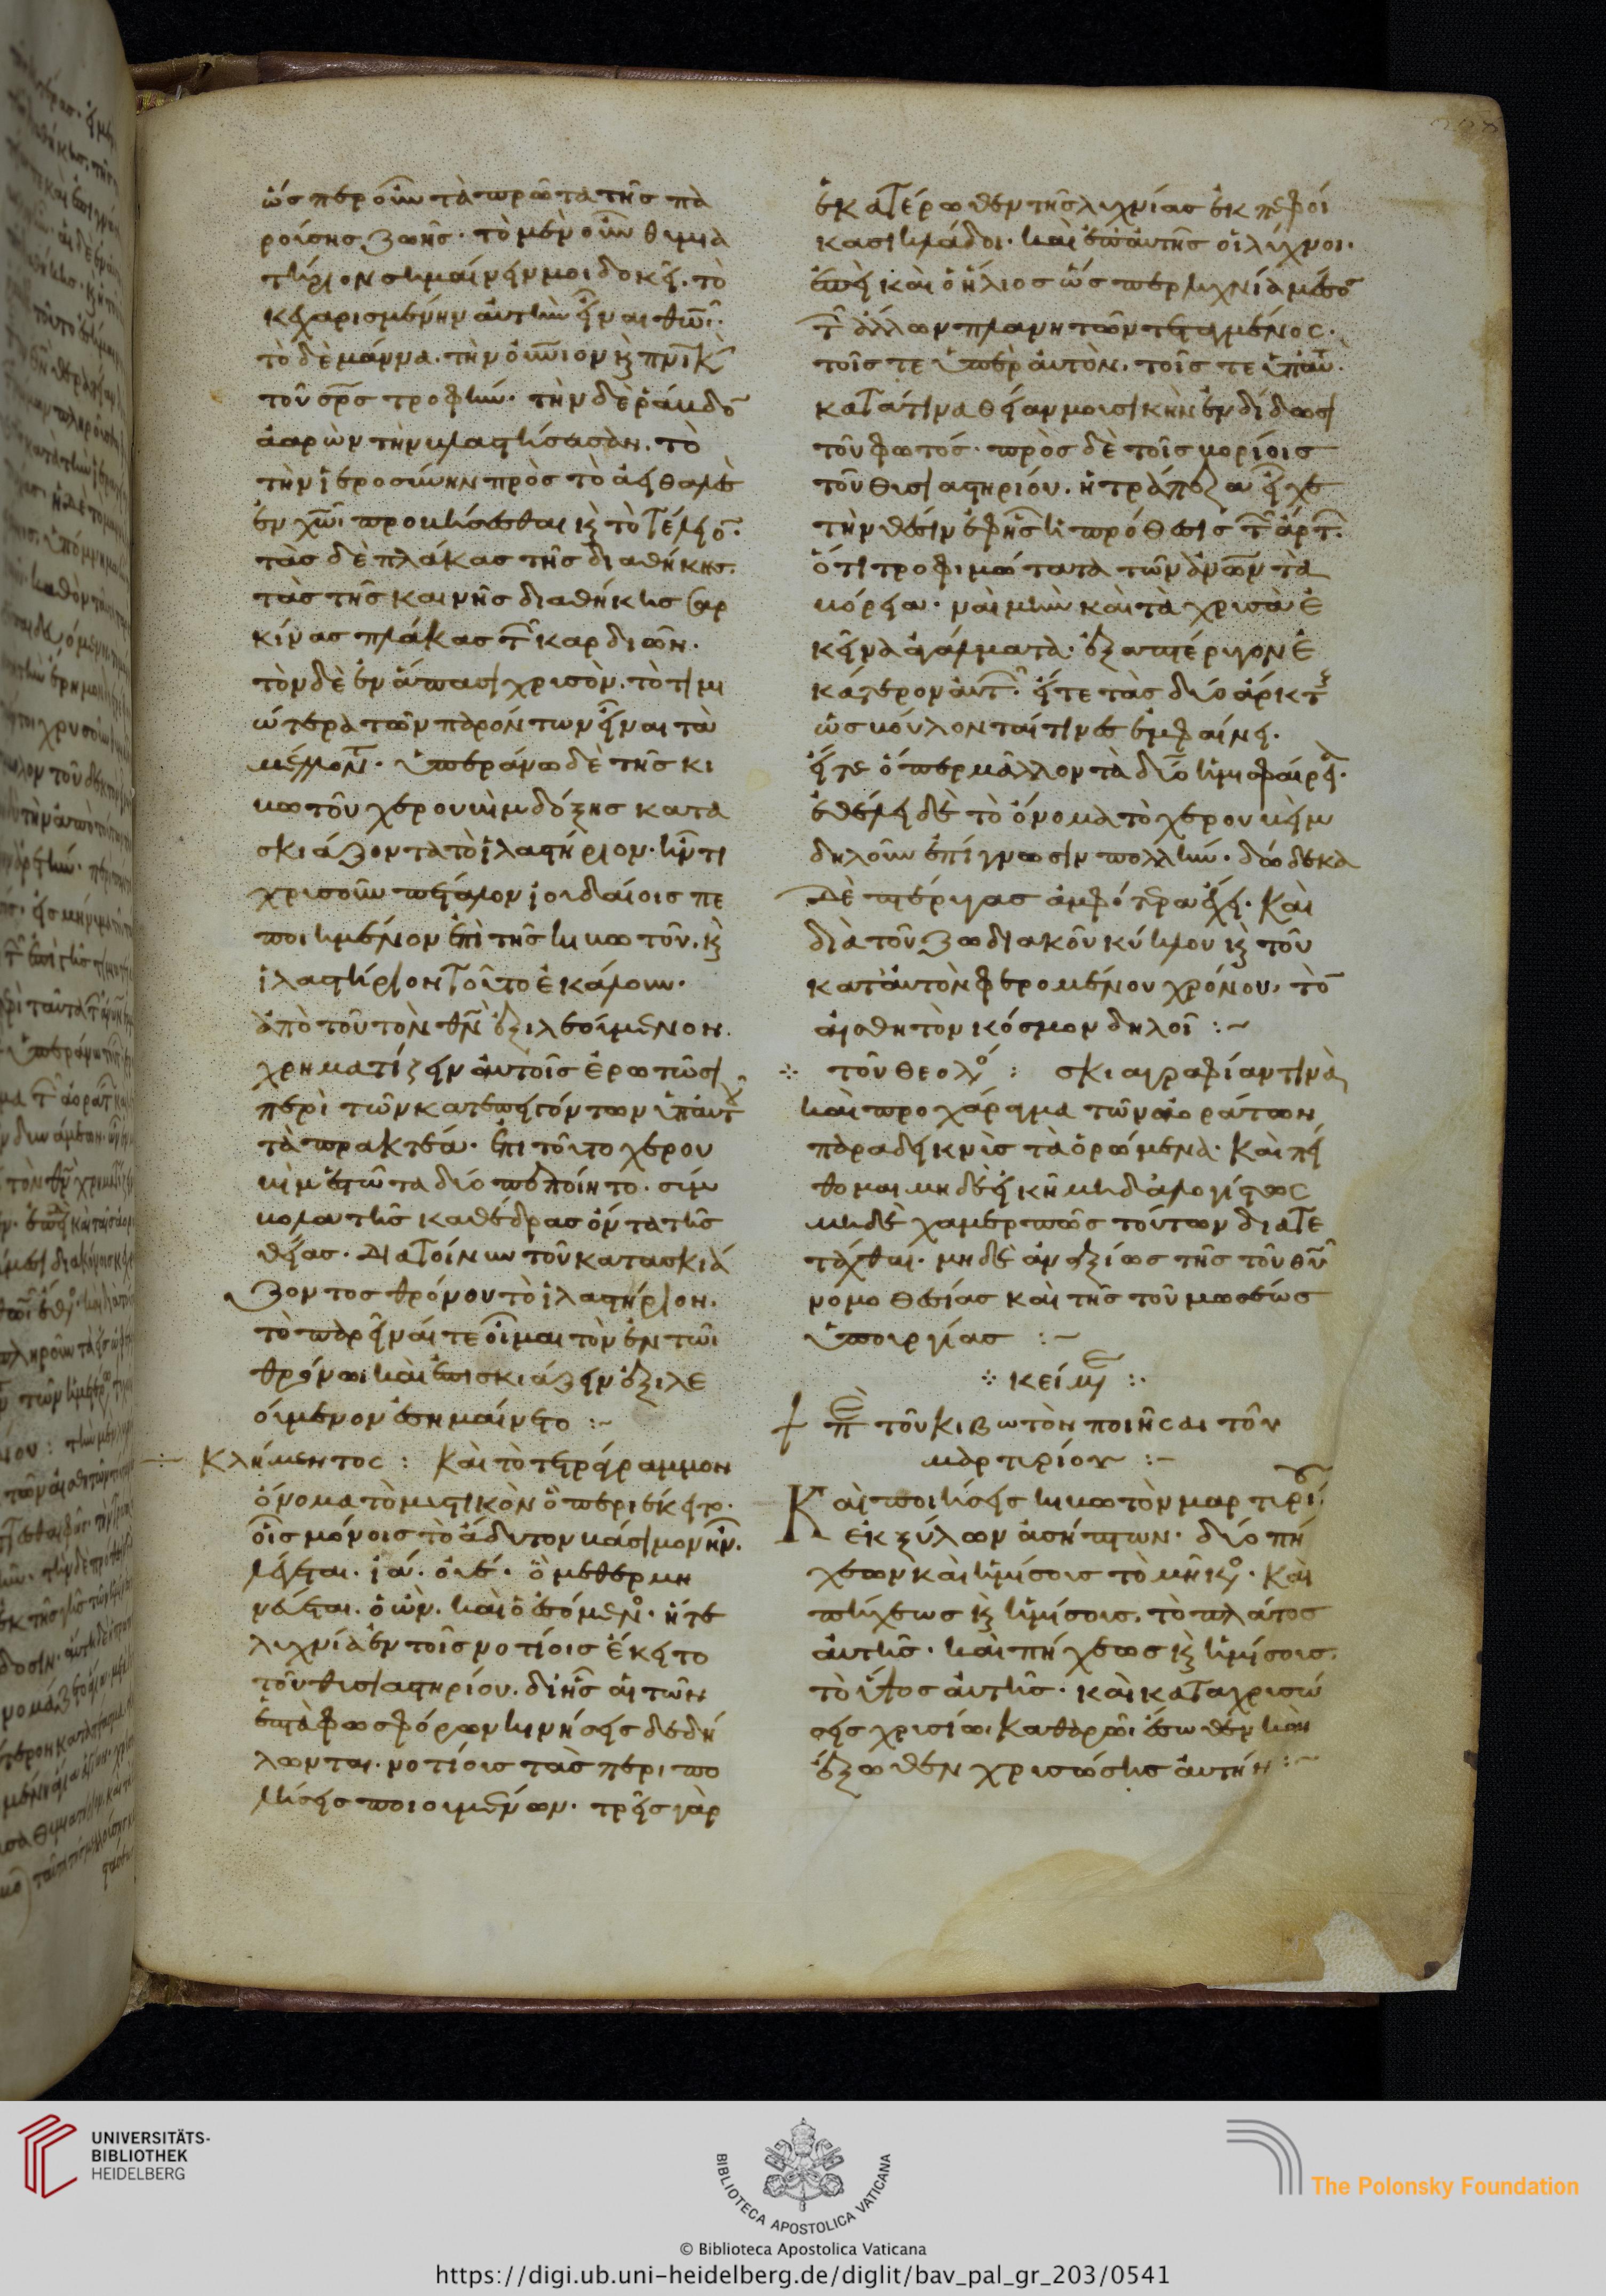 ὥσπερ οὖν τὰ πρῶτα τῆς πα
ρούσης ζωῆς· τὸ μὲν οὖν θυμια
τήριον σημαίνειν μοι δοκεῖ. τὸ
κεχαρισμένην αὐτὴν εἶναι θῶι·
τὸ δὲ μάννα. τὴν οὐνιον κ πνικὴν
τοῦ σρς τροφήν· τὴν δὲ ῥάβδον
ἀαρὼν τὴν βλαστήσασαν. τὸ
τὴν ἱερωσύνην πρὸς τὸ ἀειθαλὲς
ἐν χωι προβήσεσθαι κ τὸ τέλειον·
τὰς δὲ πλάκας τῆς διαθήκης.
τὰς τῆς καινῆς διαθήκης σαρ
κίνας πλάκας τῶν καρδιῶν.
τὸν δὲ ἐν ἅπασι χρυσὸν. τὸ τιμι
ώτερα τῶν παρόντων εἶναι τὰ
μέλλοντα. ὑπεράνω δὲ τῆς κι
βωτοῦ χερουβὶμ δόξης κατα
σκιάζοντα τὸ ἱλαστήριον. ἦν τι
χρυσοῦν πέταλον ἰουδαίοις πε
ποιημένον ἐπὶ τῆς κιβωτοῦ. κ
ἱλαστήριον τοῦτο ἐκάλουν.
ἀπὸ τοῦ τὸν θν ἐξιλεούμενον
χρηματίζειν αὐτοῖς ἐρωτῶσι
περὶ τῶν κατεπειγόντων ὑπ αὐτῶν
τὰ πρακτέα. ἐπὶ τοῦτο χερου
βὶμ ἑστῶτα δύο πεποίητο. σύμ
βολον τῆς καθέδρας ὄντα τῆς
θείας. Διατοίνυν τοῦ κατασκιά
ζοντος θρόνου τὸ ἱλαστήριον.
τὸ παρεῖναί τε οἶμαι τὸν ἐν τῶι
θρόνωι καὶ ἐπισκιάζειν ἐξιλε
ούμενον ἐσημαίνετο :~
Κλήμεντος : Καὶ τὸ τετράγραμμον
ὄνομα τὸ μυστικὸν ὃ περιέκειτο.
οἷς μόνοις τὸ ἄδυτον βάσιμον ἦν.
λέγεται. ἰὰ. οὐέ. ὃ μεθερμη
νεύεται. ὁ ὢν. καὶ ὁ ἐσόμενος. ἥτε
λυχνία ἐν τοῖς νοτίοις ἔκειτο
τοῦ θυσιαστηρίου. δι ἧς αἱ τῶν
ἑπτὰ φωσφόρων κινήσεις δεδή
λωνται. νοτίοις τὰς περιπο
λήσεις ποιουμένων. τρεῖς γὰρ
ἑκατέρωθεν τῆς λυχνίας ἐκπεφύ
κασι κλάδοι. καὶ ἐπ αὐτῆς οἱ λύχνοι.
ἐπεὶ καὶ ὁ ἥλιος ὥσπερ λυχνία μέσον
τῶν ἄλλων πλανητῶν τεταγμένος.
τοῖς τε ὑπὲρ αὐτὸν. τοῖς τε ὑπ αὐτ.
κατά τινα θείαν μουσικὴν ἐνδίδωσι
τοῦ φωτός. πρὸς δὲ τοῖς βορίοις
τοῦ θυσιαστηρίου. ἡ τράπεζα εἶχε
τὴν θέσιν ἐφ ἧς ἡ πρόθεσις τῶν ἄρτων
ὅτι τροφιμώτατα τῶν ἀνέμων τὰ
βόρεια. ναὶ μὴν καὶ τὰ χρυσᾶ ἐ
κεῖνα ἀγάλματα. ἑξαπτέρυγον ἑ
κάτερον αὐτῶν. εἴτε τὰς δύο ἄρκτους
ὡς βούλονταί τινες ἐμφαίνει.
εἴτε ὅπερ μᾶλλον τὰ δύο ἡμισφαίρια.
ἐθέλει δὲ τὸ ὄνομα τὸ χερουβεὶμ
δηλοῦν ἐπίγνωσιν πολλήν. δώδεκα
Δὲ πτέρυγας ἀμφότερα ἔχει. Καὶ
διὰ τοῦ ζωδιακοῦ κύκλου κ τοῦ
κατ αὐτὸν φερομένου χρόνου. τὸν
αἰσθητὸν κόσμον δηλοῖ :~
τοῦ θεολγ : σκιαγραφίαν τινὰ
καὶ προχάραγμα τῶν ἀοράτων
παραδεικνὺς τὰ ὁρώμενα. Καὶ πεί
θομαι μηδὲ εἰκῆ μηδ ἀλογίστως
μηδὲ χαμερπῶς τούτων διατε
τάχθαι. μηδὲ ἀναξίως τῆς τοῦ θυ
νομοθεσίας καὶ τῆς τοῦ μωσέως
ὑπουργίας :~
κείμε :.
π τοῦ κιβωτὸν ποιῆσαι τοῦ
μαρτυρίου :~
Καὶ ποιήσεις κιβωτὸν μαρτυρίου
ἐκ ξύλων ἀσήπτων. δύο πή
χεων καὶ ἡμίσους τὸ μῆκος. Καὶ
πήχεως κ ἡμίσους. τὸ πλάτος
αὐτῆς. καὶ πήχεως κ ἡμίσους.
τὸ ὕψος αὐτῆς. καὶ καταχρυσώ
σεις χρυσίωι καθαρῶι ἔσωθεν καὶ
ἔξωθεν χρυσώσεις αὐτήν :~
UNIVERSITÄTS-
BIBLIOTHEK
HEIDELBERG
BIBLIOTECA APOSTOLICA VATICANA
The Polonsky Foundation
© Biblioteca Apostolica Vaticana
https://digi.ub.uni-heidelberg.de/diglit/bav_pal_gr_203/0541